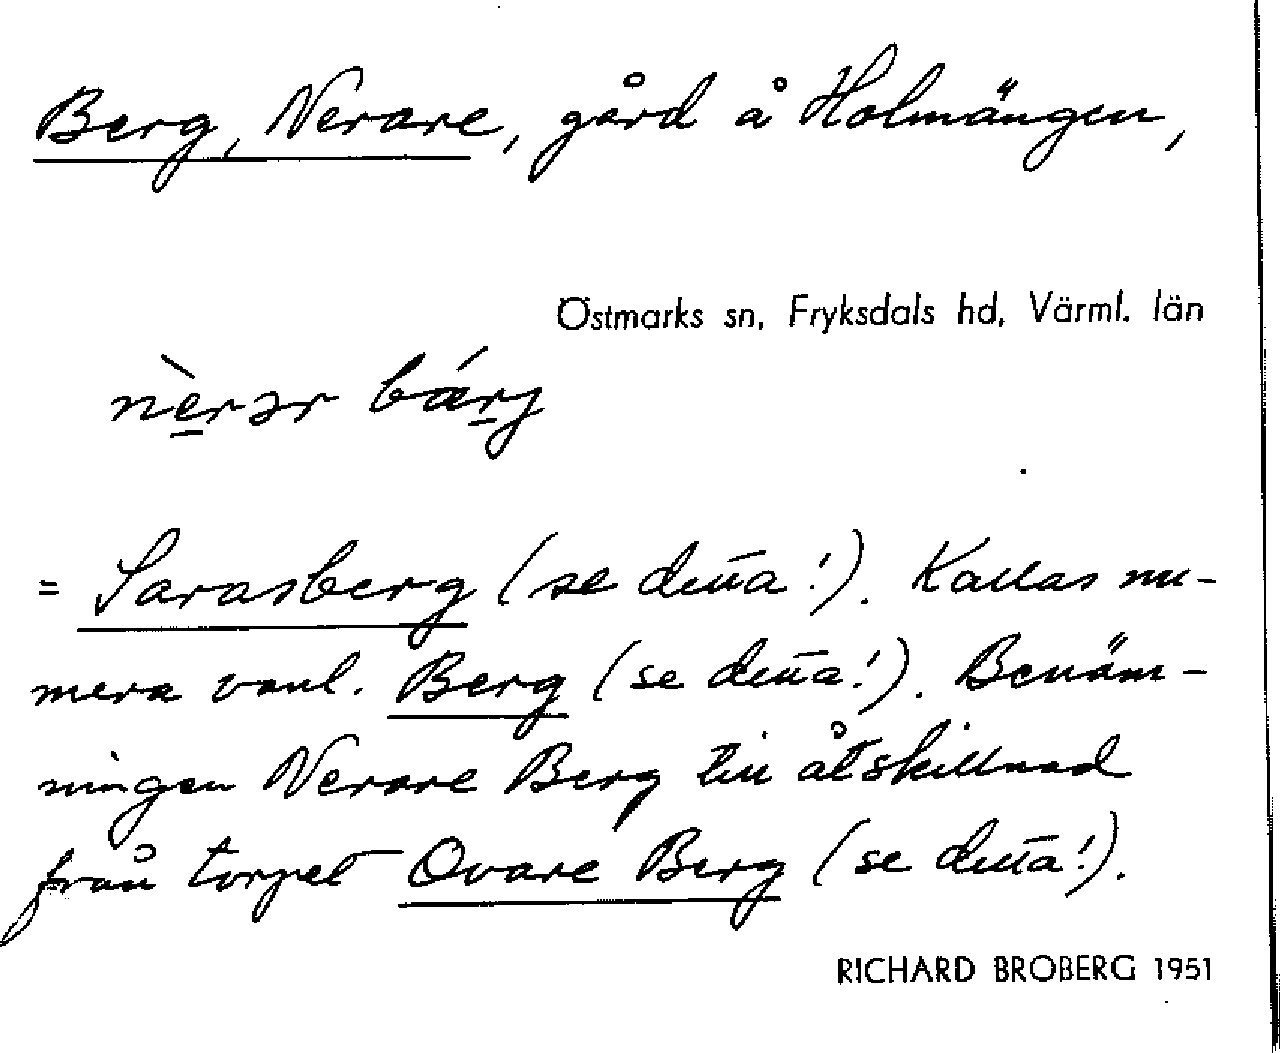 Berg, Nerare, gård å Holmängen,
Östmarks sn, Fryksdals hd, Värml. län
nè̱rər bǽṟj
= Sarasberg (se detta!). Kallas nu-
mera vanl. Berg (se detta!). Benäm-
ningen Nerare Berg till åtskillnad
från torpet Ovare Berg (se detta!).
RICHARD BROBERG 1951